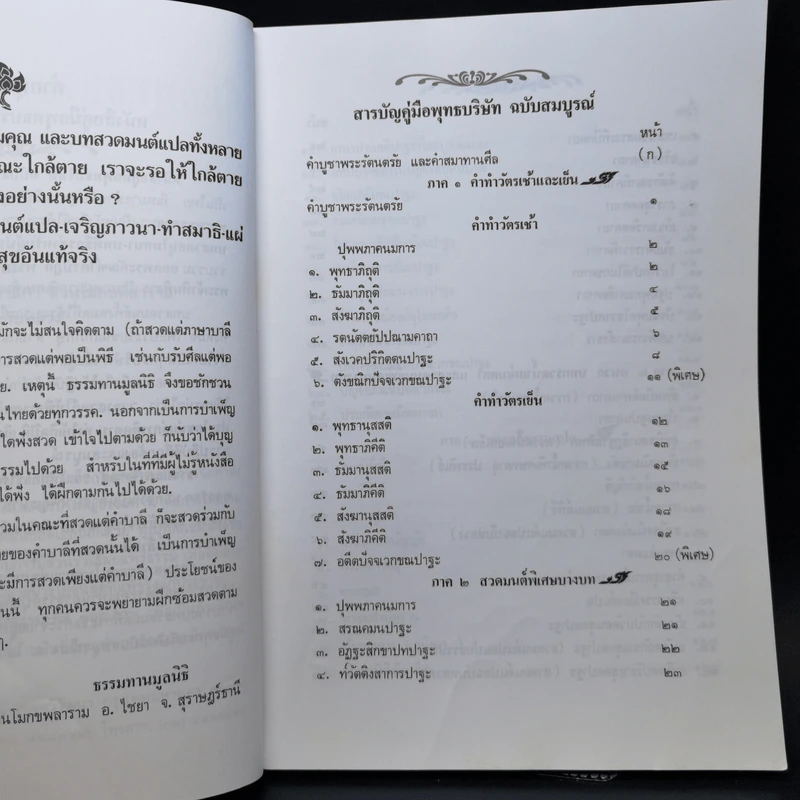 มคุณ และบทสวดมนต์แปลทั้งหลาย
ณะใกล้ตาย เราจะรอให้ใกล้ตาย
งอย่างนั้นหรือ ?
นต์แปล·เจริญภาวนา·ทำสมาธิ·แผ่
สุขอันแท้จริง
มักจะไม่สนใจคิดตาม (ถ้าสวดแต่ภาษาบาลี
การสวดแต่พอเป็นพิธี เช่นกับรับศีลแต่พอ
ย. เหตุนี้ ธรรมทานมูลนิธิ จึงขอชักชวน
นไทยด้วยทุกวรรค. นอกจากเป็นการบำเพ็ญ
ใดพึ่งสวด เข้าใจไปตามด้วย ก็นับว่าได้บุญ
รรมไปด้วย สำหรับในที่ที่มีผู้ไม่รู้หนังสือ
ได้พึ่ง ได้ฝึกตามกันไปได้ด้วย.
วมในคณะที่สวดแต่คำบาลี ก็จะสวดร่วมกับ
ายของคำบาลีที่สวดนั้นได้ เป็นการบำเพ็ญ
ะมีการสวดเพียงแต่คำบาลี) ประโยชน์ของ
นนี้ ทุกคนควรจะพยายามฝึกซ้อมสวดตาม
า.
ธรรมทานมูลนิธิ
นโมกขพลาราม อ. ไชยา จ. สุราษฎร์ธานี
สารบัญคู่มือพุทธบริษัท ฉบับสมบูรณ์
หน้า
คำบูชาพระรัตนตรัย และคำสมาทานศีล (ก)
ภาค ๑ คำทำวัตรเช้าและเย็น
คำบูชาพระรัตนตรัย ๑
คำทำวัตรเช้า
ปุพพภาคนมการ ๒
๑. พุทธาภิถุติ ๒
๒. ธัมมาภิถุติ ๔
๓. สังฆาภิถุติ ๕
๔. รตนัตตยัปปณามคาถา ๖
๕. สังเวคปริกิตตนปาฐะ ๘
๖. ตังขณิกปัจจเวกขณปาฐะ ๑๑ (พิเศษ)
คำทำวัตรเย็น
๑. พุทธานุสสติ ๑๒
๒. พุทธาภิคีติ ๑๓
๓. ธัมมานุสสติ ๑๕
๔. ธัมมาภิคีติ ๑๖
๕. สังฆานุสสติ ๑๘
๖. สังฆาภิคีติ ๑๙
๗. อตีตปัจจเวกขณปาฐะ ๒๐ (พิเศษ)
ภาค ๒ สวดมนต์พิเศษบางบท
๑. ปุพพภาคนมการ ๒๑
๒. สรณคมนปาฐะ ๒๑
๓. อัฏฐะสิกขาปทปาฐะ ๒๒
๔. ท์วัตติงสาการปาฐะ ๒๓